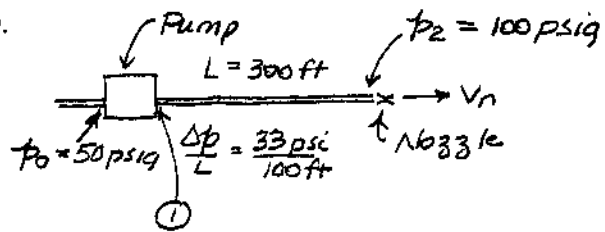 Pump
p₂ = 100 psig
L = 300 ft
Vn
Nozzle
p₀ = 50 psig
Δp/L = 33 psi/100 ft
1